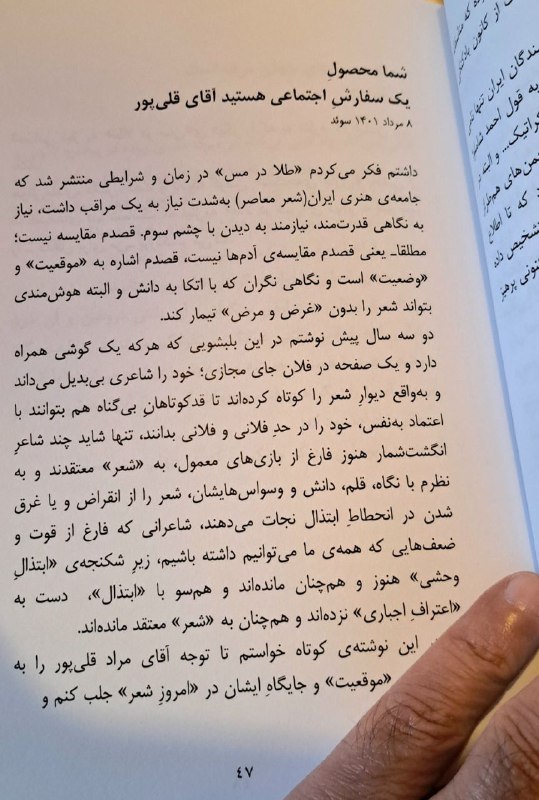 شما محصولِ
یک سفارشِ اجتماعی هستید آقای قلی‌پور
۸ مرداد ۱۴۰۱ سوئد
داشتم فکر می‌کردم «طلا در مس» در زمان و شرایطی منتشر شد که
جامعه‌ی هنری ایران(شعر معاصر) به‌شدت نیاز به یک مراقب داشت، نیاز
به نگاهی قدرت‌مند، نیازمند به دیدن با چشم سوم. قصدم مقایسه نیست؛
مطلقا- یعنی قصدم مقایسه‌ی آدم‌ها نیست، قصدم اشاره به «موقعیت» و
«وضعیت» است و نگاهی نگران که با اتکا به دانش و البته هوش‌مندی
بتواند شعر را بدون «غرض و مرض» تیمار کند.
دو سه سال پیش نوشتم در این بلبشویی که هرکه یک گوشی همراه
دارد و یک صفحه در فلان جای مجازی؛ خود را شاعری بی‌بدیل می‌داند
و به‌واقع دیوارِ شعر را کوتاه کرده‌اند تا قدکوتاهانِ بی‌گناه هم بتوانند با
اعتماد به‌نفس، خود را در حدِ فلانی و فلانی بدانند، تنها شاید چند شاعرِ
انگشت‌شمار هنوز فارغ از بازی‌های معمول، به «شعر» معتقدند و به
نظرم با نگاه، قلم، دانش و وسواس‌هایشان، شعر را از انقراض و یا غرق
شدن در انحطاطِ ابتذال نجات می‌دهند، شاعرانی که فارغ از قوت و
ضعف‌هایی که همه‌ی ما می‌توانیم داشته باشیم، زیرِ شکنجه‌ی «ابتذالِ
وحشی» هنوز و هم‌چنان مانده‌اند و هم‌سو با «ابتذال»، دست به
«اعترافِ اجباری» نزده‌اند و هم‌چنان به «شعر» معتقد مانده‌اند.
این نوشته‌ی کوتاه خواستم تا توجه آقای مراد قلی‌پور را به
«موقعیت» و جایگاهِ ایشان در «امروزِ شعر» جلب کنم و
۴۷
از کانون
ندگان ایران تنها
به قول احمد
کراتیک... و البته
من‌های هم‌طراز
که تا اطلاع
تشخیص داده
نونی پرهیز